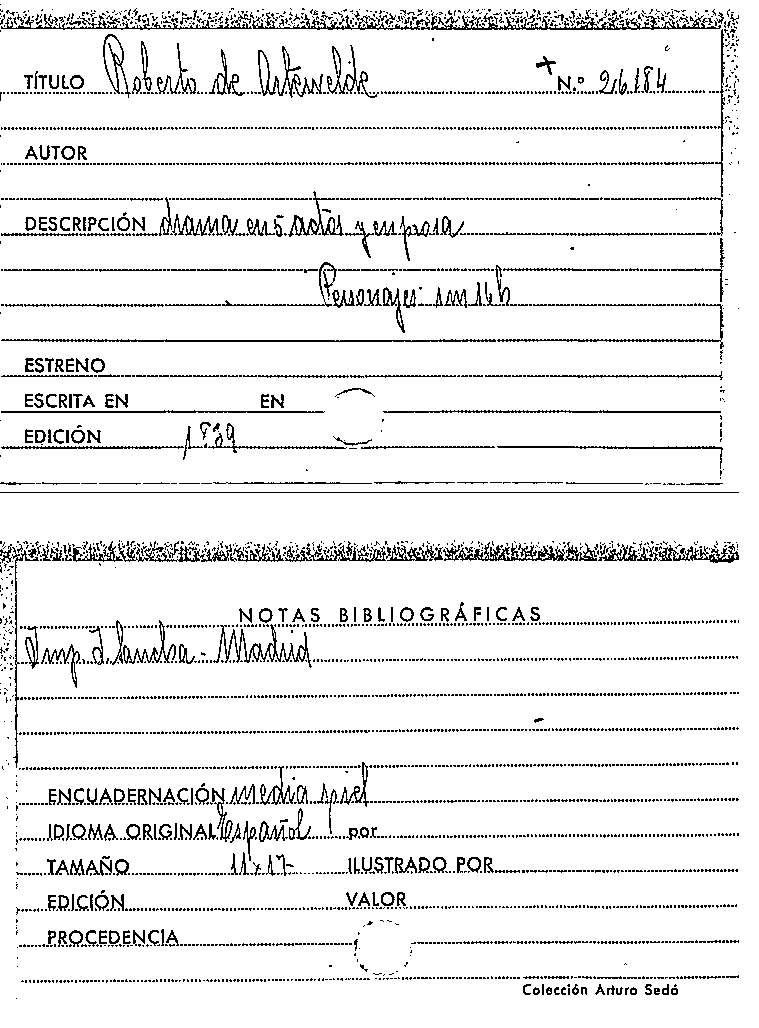 TÍTULO Roberto de Artewelde N.º 26184
AUTOR
DESCRIPCIÓN drama en 5 actos y en prosa
Personajes: 1m 16h
ESTRENO
ESCRITA EN EN
EDICIÓN 1839
NOTAS BIBLIOGRÁFICAS
Imp. I. Sancha - Madrid
ENCUADERNACIÓN media piel
IDIOMA ORIGINAL Español por
TAMAÑO 11 x 17 ILUSTRADO POR
EDICIÓN VALOR
PROCEDENCIA
Colección Arturo Sedó